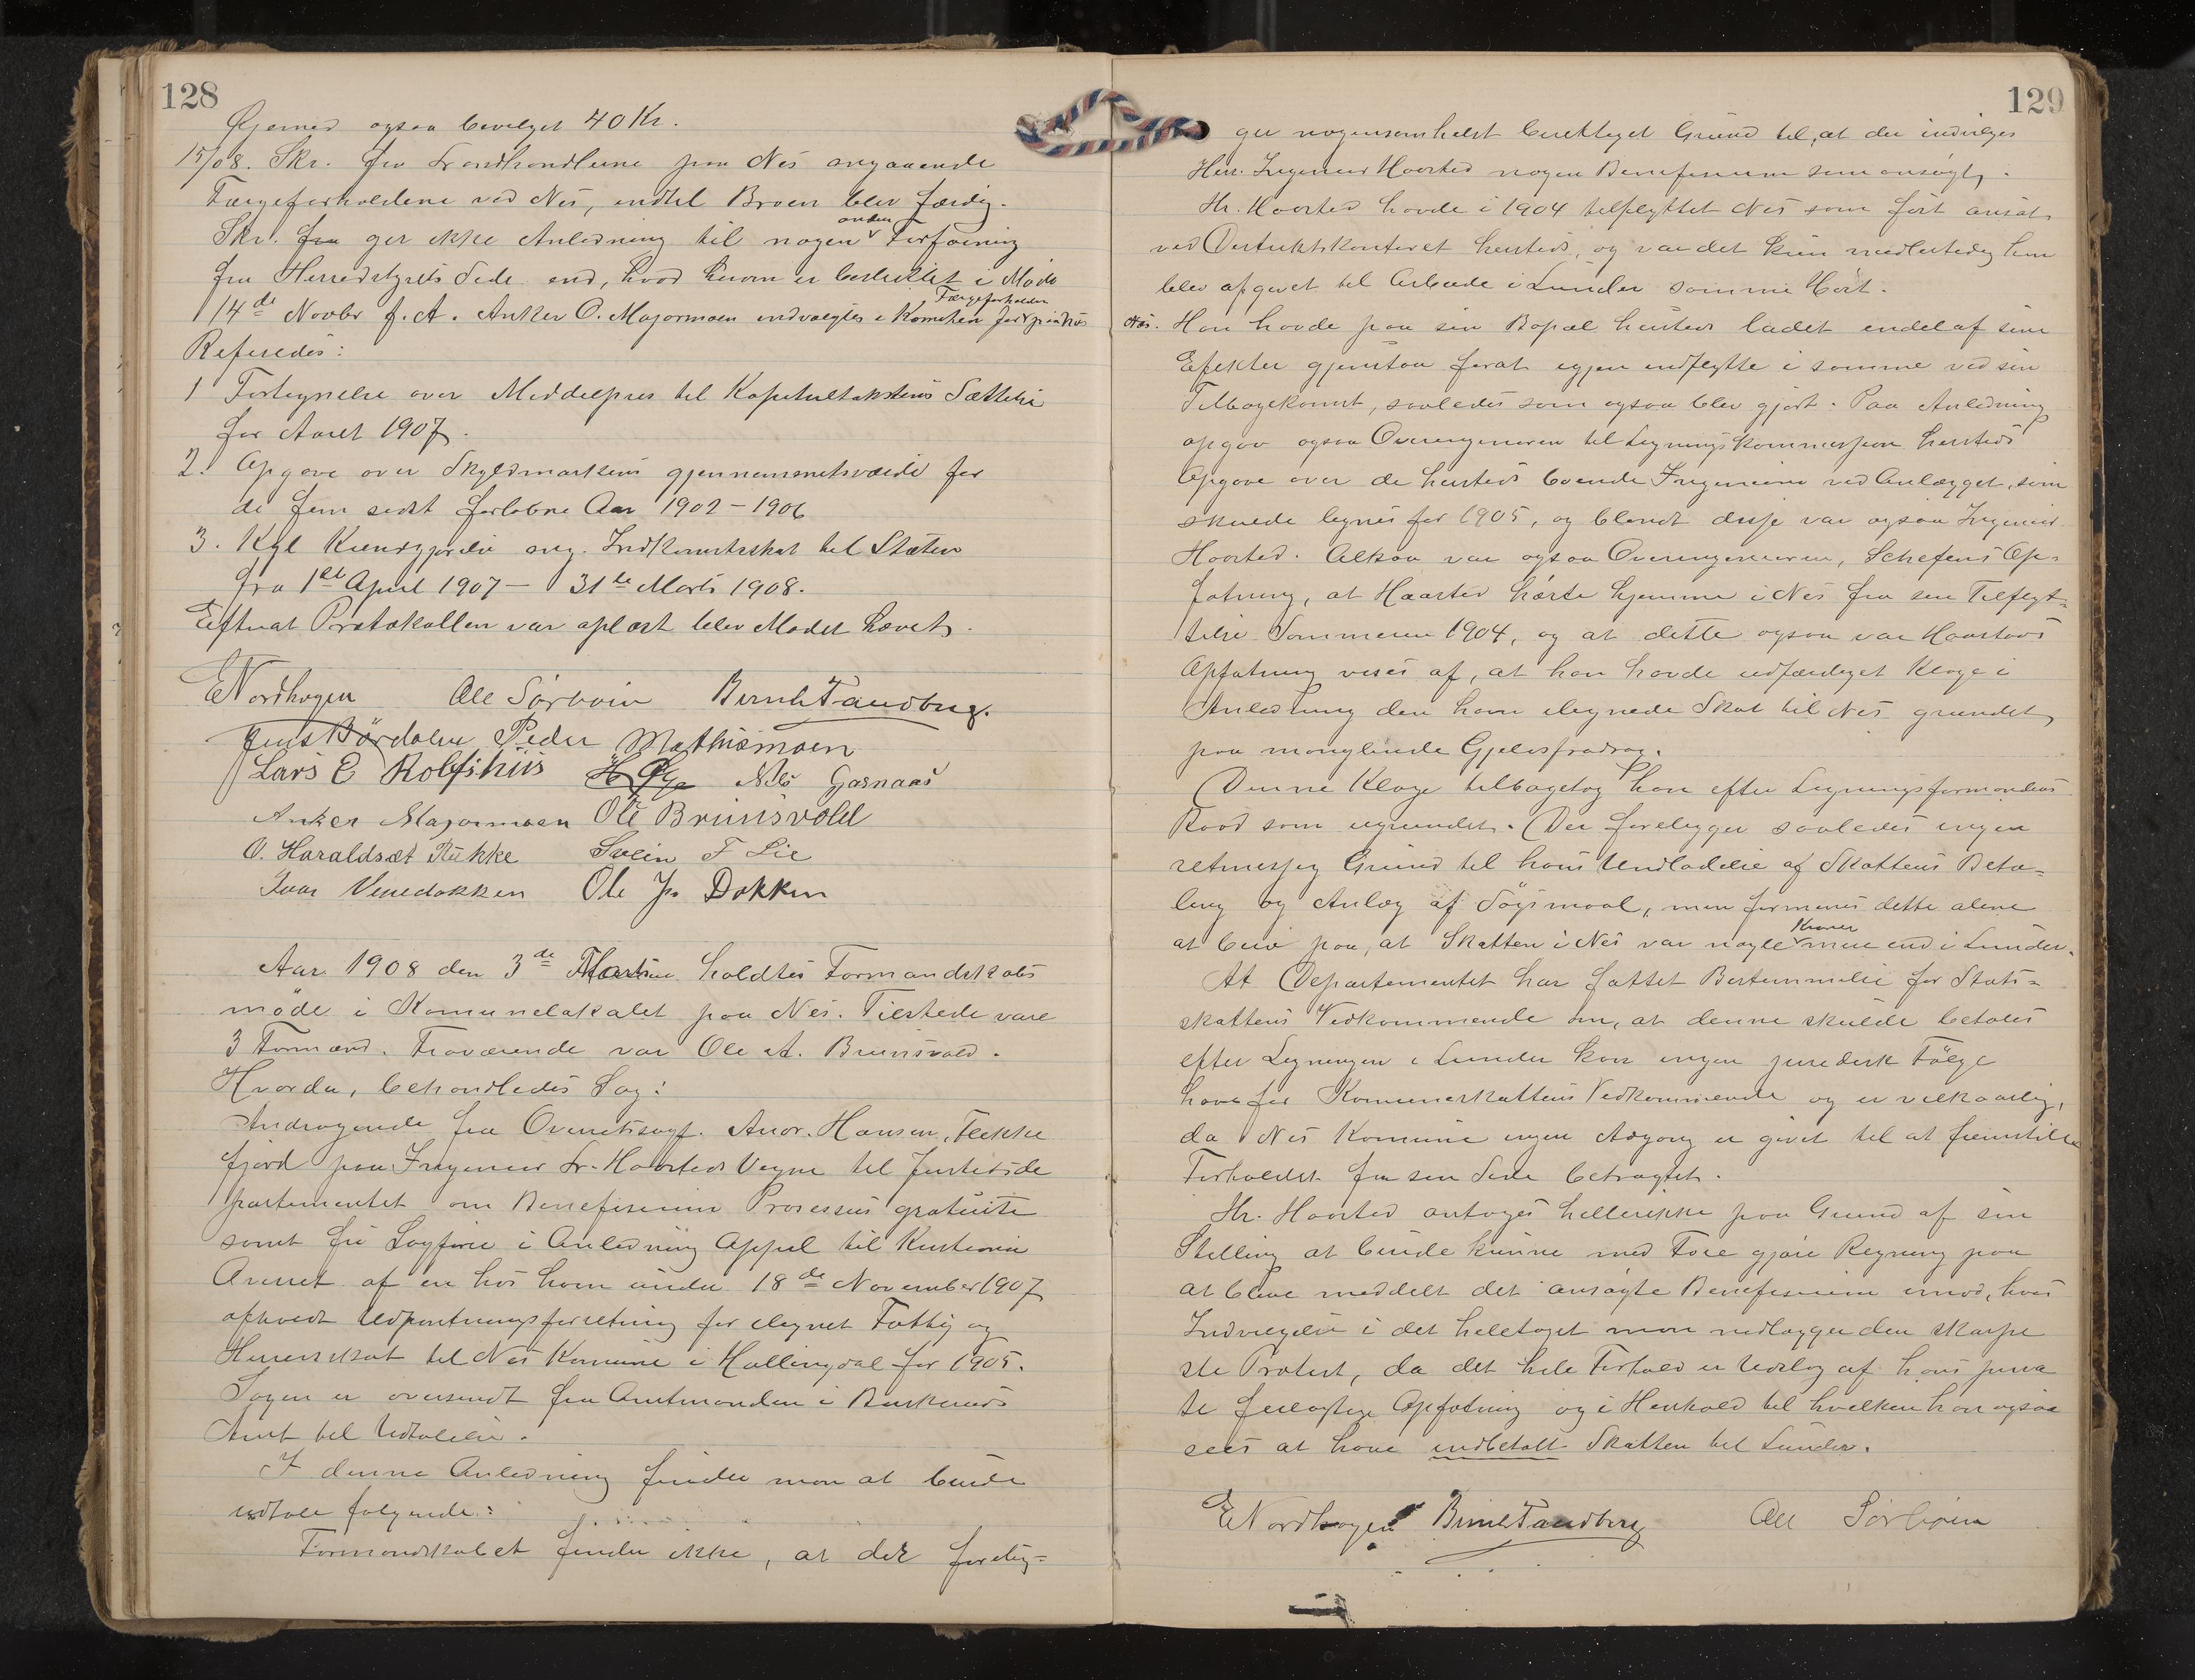 128
Øjemed ogsaa bevilget 40 Kr.
15/08. Skr. fra Landhandlerne paa Nes angaaende
Færgeforholdene ved Nes, indtil Broen blev færdig.
Skr. fra ger ikke Anledning til nogen anden Forføining
fra Herredstyrets Side end, hvad herom er besluttet i Møde
14de Novbr f. A. Anker O. Majormoen indvalgtes i Komiteen for Færgeforholden paa Nes
Referedes:
1 Fortegnelse over Middelpris til Kapitultakstens Sættelse
for Aaret 1907.
2. Opgave over Skyldmarkens gjennemsnitsværdi for
de fem sidst forløbne Aar 1902 - 1906
3. Kgl Kundgjørelse ang. Indkomstskat til Staten
fra 1ste April 1907 - 31te Marts 1908.
Efterat Protokollen var oplæst blev Mødet hævet.
E Nordhagen Ole Sørbøen Bernh Tandberg.
Jens Børdalen Peder Mathismoen
Lars E Rolfshus Nils Garnaas
Anker Majormoen Ole Brunsvold
O. Haraldset Rukke Svein T Lie
Ivar Venedokken Ole Js Dokken
Aar 1908 den 3de Marts holdtes Formandskabs
møde i Komunelokalet paa Nes. Tilstede vare
3 Formænd. Fraværende var Ole A. Brunsvold.
Hvorda, behandledes Sag:
Andragende fra Overretssagf. Andr. Hansen, Flekke
fjord paa Ingeniør Fr. Haarsteds Vegne til Justitsde
partementet om Benefisium Prosessus gratuito
samt fri Sagfører i Anledning Appel til Kristiania
Overret af en hos ham under 18de November 1907
afholdt Udpantningsforretning for ilignet Fattig og
Herredsskat til Nes Komune i Hallingdal for 1905.
Sagen er oversendt fra Amtmanden i Buskeruds
Amt til Udtalelse.
I denne Anledning finder man at burde
udtale følgende:
Formandskabet finder ikke, at der forelig=
129
ger nogensomhelst berettiget Grund til, at der indvilges
Herr. Ingeniør Haarsted nogen Benefisium som ansøgt.
Hr. Haarsted havde i 1904 tilflyttet Nes som fast ansat
ved Distriktskontoret hersteds, og var det kun midlertidig han
blev afgivet til Arbeide i Lunder samme Høst.
Nes. Han havde paa sin Bopæl hersteds ladet endel af sine
Efekter gjenstaa forat igjen indflytte i samme ved sin
Tilbagekomst, saaledes som ogsaa blev gjort. Paa Anledning
opgav ogsaa Overingeniøren til Ligningskommissjon hersteds
Opgave over de hersteds boende Ingeniører ved Anlægget, som
skulde lignes for 1905, og blandt disse var ogsaa Ingeniør
Haarsted. Altsaa var ogsaa Overingeniøren, Schefens Op=
fatning, at Haarsted hørte hjemme i Nes fra sin Tilflyt=
telse Sommeren 1904, og at dette ogsaa var Haarsteds
Opfatning vises af, at han havde udfærdiget Klage i
Anledning den ham ilignede Skat til Nes grundet
paa manglende Gjeldsfradrag.
Denne Klage tilbagetog han efter Ligningsformandens
Raad som ugrundet. Der foreligger saaledes ingen
retmessig Grund til hans Undladelse af Skattens Beta=
ling og Anlæg af Søgsmaal, men formenes dette alene
at bero paa, at Skatten i Nes var nogle Kroner mere end i Lunder.
At Departementet har fattet Bestemmelse for Stats=
skattens Vedkommende om, at denne skulde betales
efter Ligningen i Lunder kan ingen juridisk Følge
have for Komuneskattens Vedkommende og er vilkaarlig,
da Nes Komune ingen Adgang er givet til at fremstille
Forholdet fra sin Side betragtet.
Hr. Haarsted antages hellerikke paa Grund af sin
Stilling at burde kunne med Føie gjøre Regning paa
at blive meddelt det ansøgte Benefisium imod, hvis
Indvilgelse i det heletaget man nedlægger den skarpe
ste Protest, da det hele Forhold er Udslag af hans priva
te feilagtige Opfatning og i Henhold til hvilken han ogsaa
sees at have indbetalt Skatten til Lunder.
E Nordhagen Bernh Tandberg Ole Sørbøen